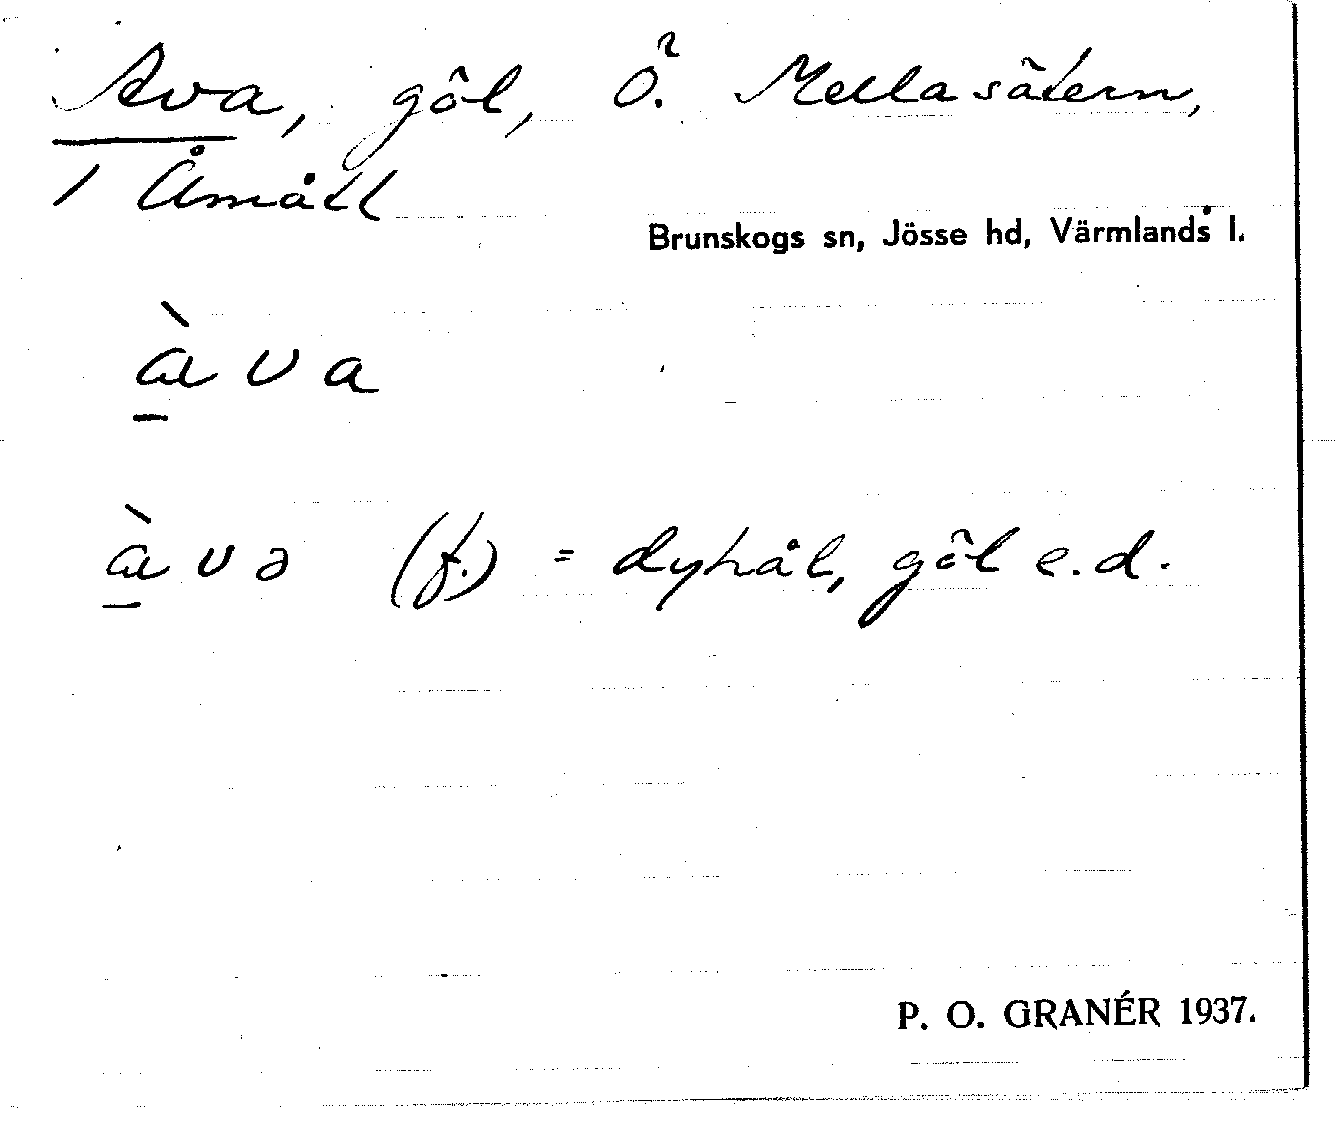 Ava, göl, Ö. Mellasätern,
/ Åmått
Brunskogs sn, Jösse hd, Värmlands l.
àva
àvə (f.) = dyhål, göl e.d.
P. O. GRANÉR 1937.